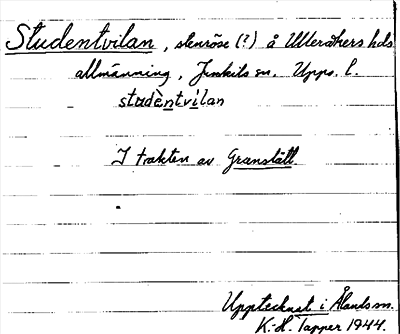 Studentvilan, stenröse (?) å Ulleråkers hds
allmänning, Jumkils sn. Upps. l.
studèntvilan
I trakten av Granslätt
Upptecknat i Ålands sn.
K.H. Tapper 1944.